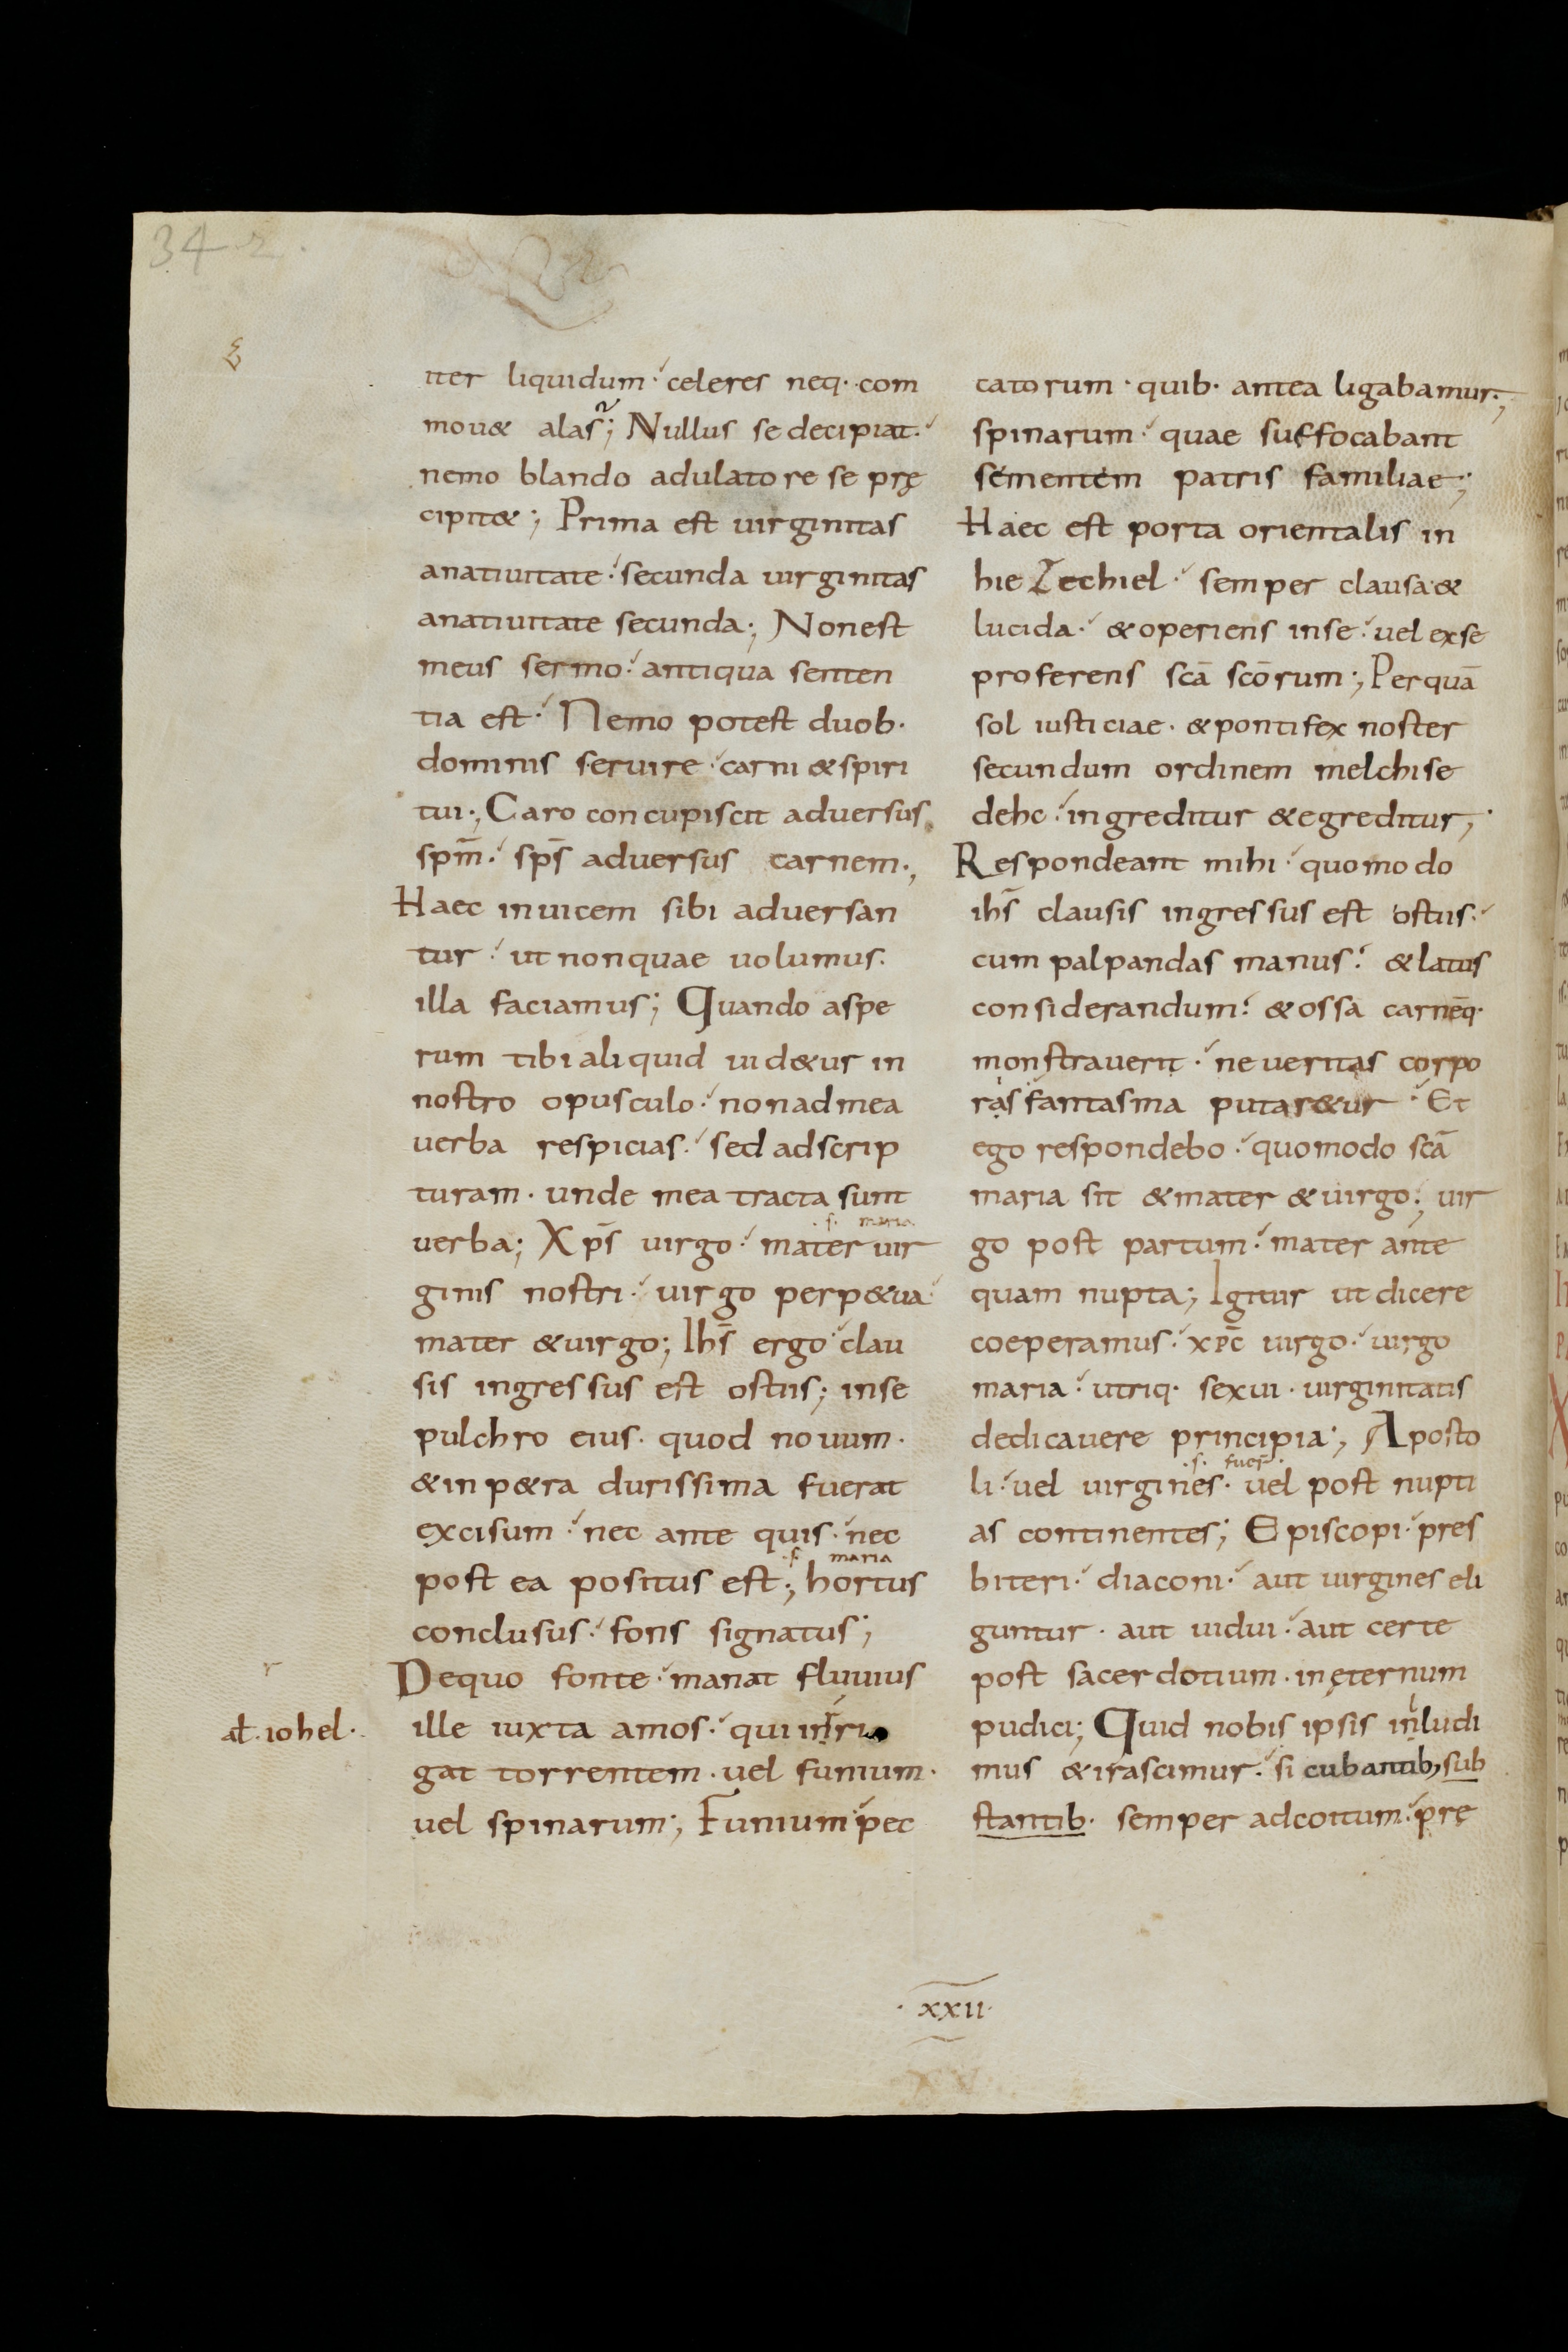 342.
iter liquidum celeres neq· com
mou& alas; Nullus se decipiat
nemo blando adulatore se prę
cipit&; Prima est uirginitas
anatiuitate· secunda uirginitas
anatiuitate secunda; Nonest
meus sermo· antiqua senten
tia est· Nemo potest duob·
dominis seruire· carni &spiri
tui; Caro concupiscit aduersus
spm̄· sps̄ aduersus carnem;
Haec inuicem sibi aduersan
tur· ut nonquae uolumus·
illa faciamus; Quando aspe
rum tibi aliquid uid&ur in
nostro opusculo· nonadmea
uerba respicias· sed adscrip
turam· unde mea tracta sunt
·s· maria
uerba; Xps̄ uirgo· mater uir
ginis nostri· uirgo perp&ua
mater &uirgo; Ihs̄ ergo clau
sis ingressus est ostiis; inse
pulchro eius· quod nouum·
&inp&ra durissima fuerat
excisum· nec ante quis· nec
·s· maria
post ea positus est; hortus
conclusus· fons signatus;
Dequo fonte· manat fluuius
ille iuxta amos· qui inri
gat torrentem· uel funium·
uel spinarum; Funium pec
r
al· iohel·
catorum· quib· antea ligabamur;
spinarum· quae suffocabant
sementem patris familiae;
Haec est porta orientalis in
hieZechiel· semper clausa &
lucida· &operiens inse· uel exse
proferens scā scōrum; Perquā
sol iusticiae· &pontifex noster
secundum ordinem melchise
dehc· ingreditur &egreditur;
Respondeant mihi· quomodo
ihs̄ clausis ingressus est ostiis·
cum palpandas manus· &latus
considerandum· &ossa carnēq·
monstrauerit· ne ueritas corpo
ras fantasma putar&ur· Et
ego respondebo· quomodo scā
maria sit &mater &uirgo; uir
go post partum· mater ante
quam nupta; Igitur ut dicere
coeperamus· xpc̄ uirgo· uirgo
maria· utriq· sexui· uirginitatis
dedicauere principia; Aposto
·s· fuer̄·
li· uel uirgines· uel post nupti
as continentes; Episcopi· pres
biteri· diaconi· aut uirgines eli
guntur· aut uidui· aut certe
post sacerdotium· inęternum
pudici; Quid nobis ipsis inludi
mus &irascimur· si cubantib; sub
stantib· semper adcoitum· prę
· xxii·